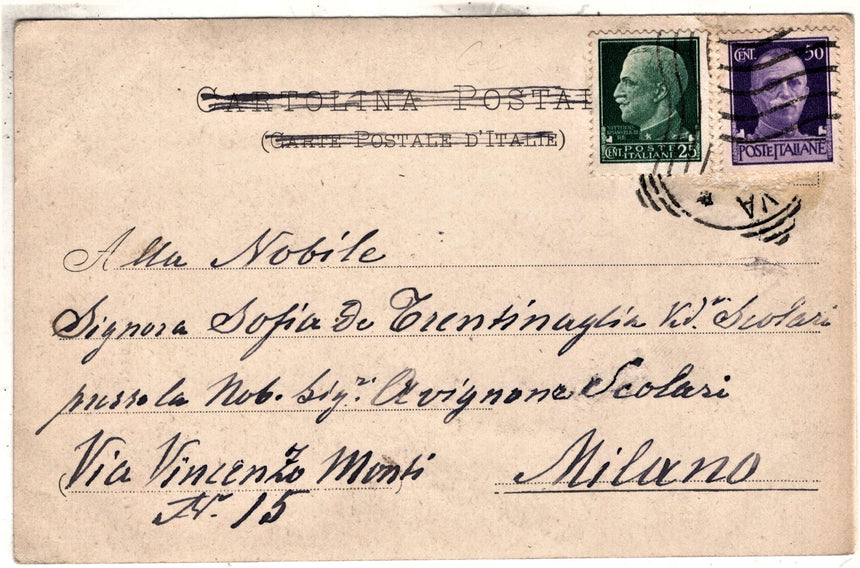 CARTOLINA POSTAL
(CARTE POSTALE D'ITALIE)
VITTORIO EMANUELE III
CENT. POSTE ITALIANE 25
CENT. 50
POSTE ITALIANE
VA
Alla Nobile
Signora Sofia De Trentinaglia Vd.ª Scolari
presso la Nob. Sig.ri Avignone Scolari
Via Vincenzo Monti Milano
N.º 15